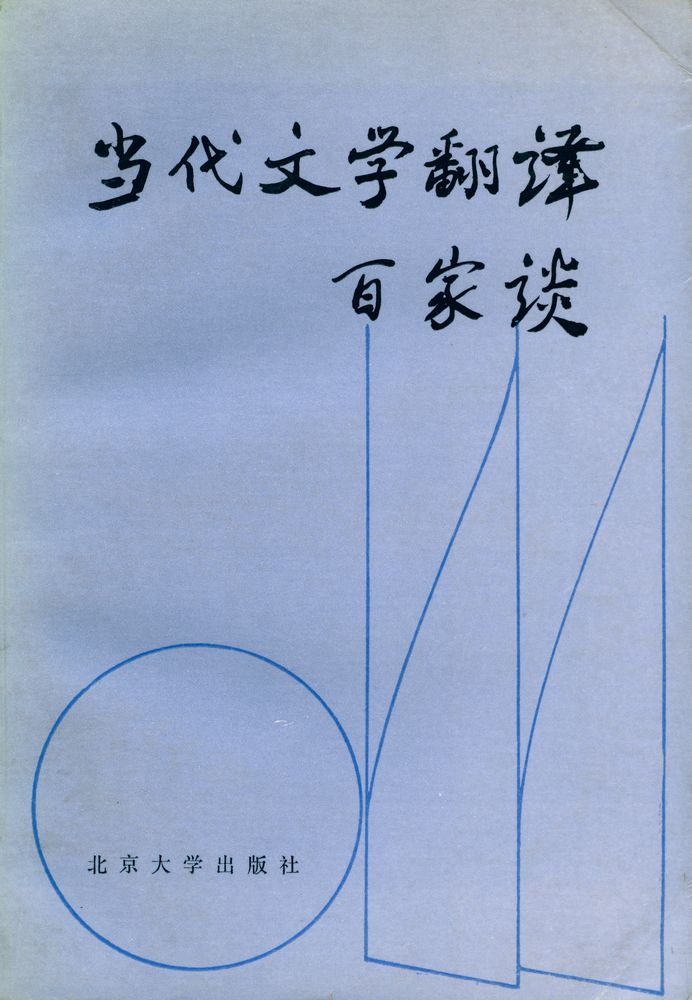 当代文学翻译
百家谈
北京大学出版社